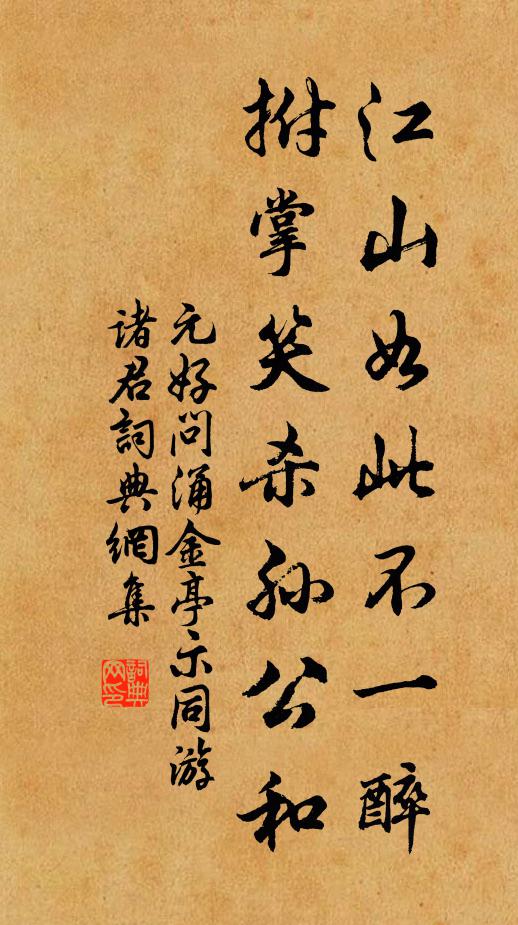 江山如此不一醉
拊掌笑杀孙公和
元好问涌金亭示同游
诸君词典網集
詞典網印